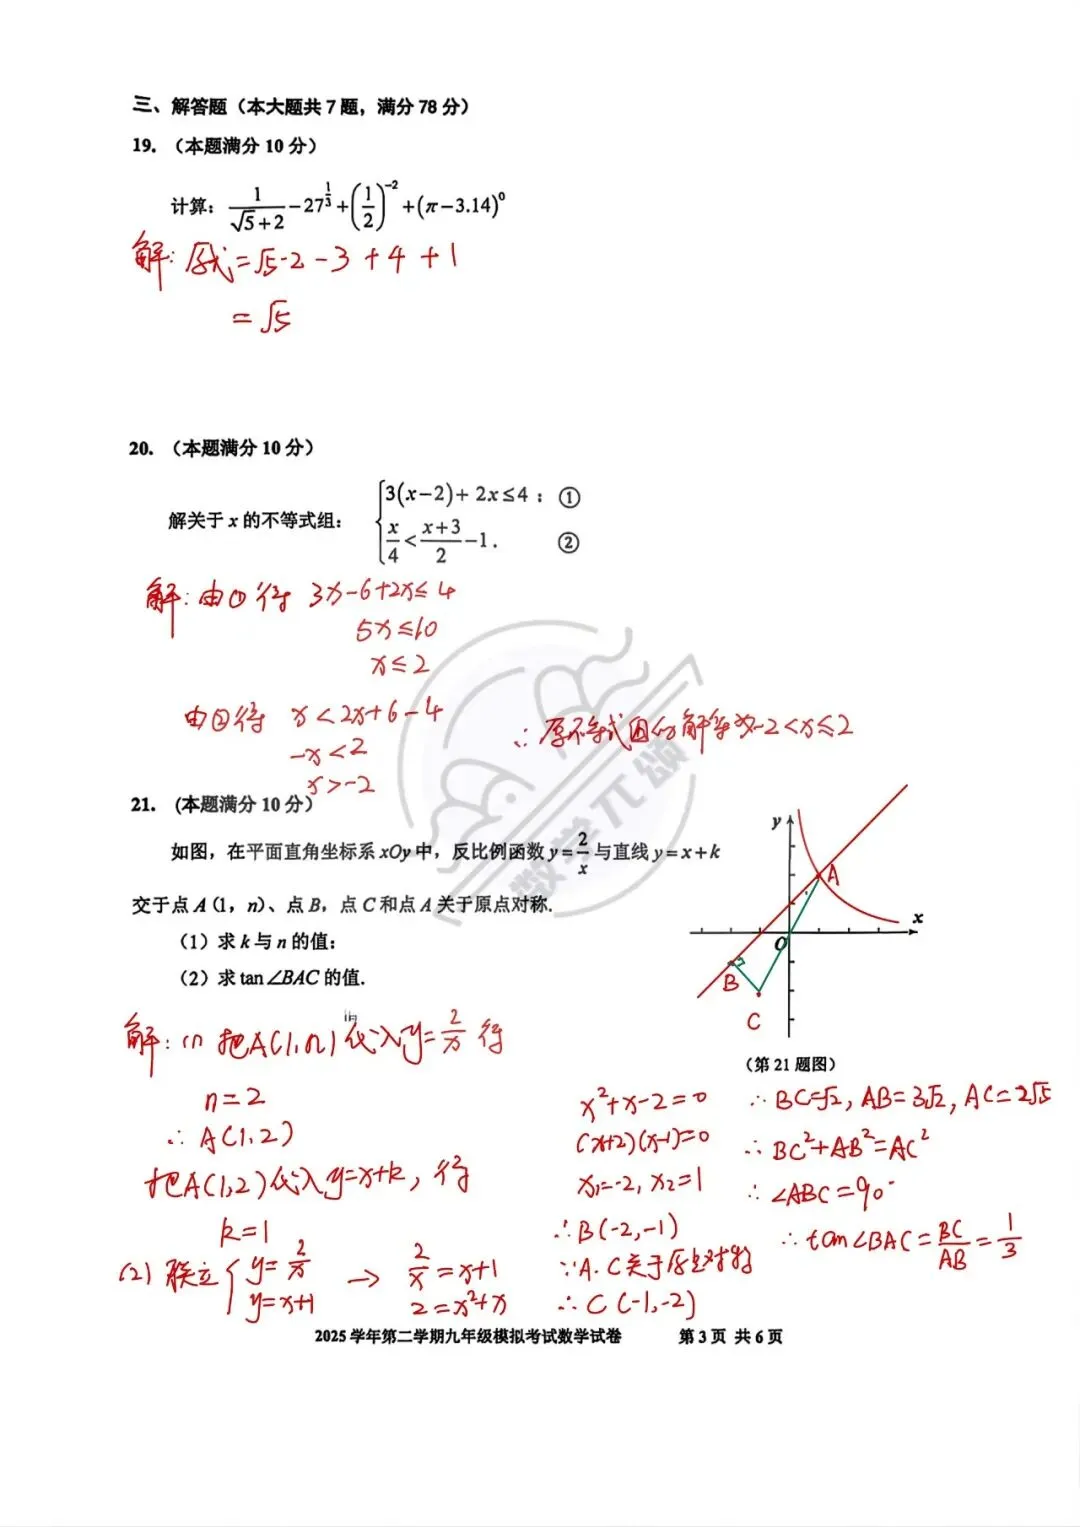 三、解答题（本大题共 7 题，满分 78 分）
19. （本题满分 10 分）
计算：1/(√5+2) - 27^(1/3) + (1/2)^(-2) + (π-3.14)^0
解：原式=√5-2-3+4+1
=√5
20. （本题满分 10 分）
解关于 x 的不等式组：
{ 3(x-2)+2x≤4； ①
x/4 < (x+3)/2 - 1. ②
解：由①得 3x-6+2x≤4
5x≤10
x≤2
由②得 x<2x+6-4
-x<2
x>-2
∴原不等式组的解集为-2<x≤2
21. （本题满分 10 分）
如图，在平面直角坐标系 xOy 中，反比例函数 y=2/x 与直线 y=x+k
交于点 A (1，n)、点 B，点 C 和点 A 关于原点对称.
（1）求 k 与 n 的值；
（2）求 tan∠BAC 的值.
y
A
x
O
B
C
（第 21 题图）
解：(1) 把A(1,n)代入y=2/x 得
n=2
∴A(1,2)
把A(1,2)代入y=x+k，得
k=1
(2) 联立{ y=2/x
y=x+1
→ 2/x=x+1
2=x²+x
x²+x-2=0
(x+2)(x-1)=0
x₁=-2, x₂=1
∴B(-2,-1)
∵A.C关于原点对称
∴C(-1,-2)
∴BC=√2, AB=3√2, AC=2√5
∴BC²+AB²=AC²
∴∠ABC=90°
∴tan∠BAC=BC/AB=1/3
2025 学年第二学期九年级模拟考试数学试卷 第 3 页 共 6 页
数学π颂